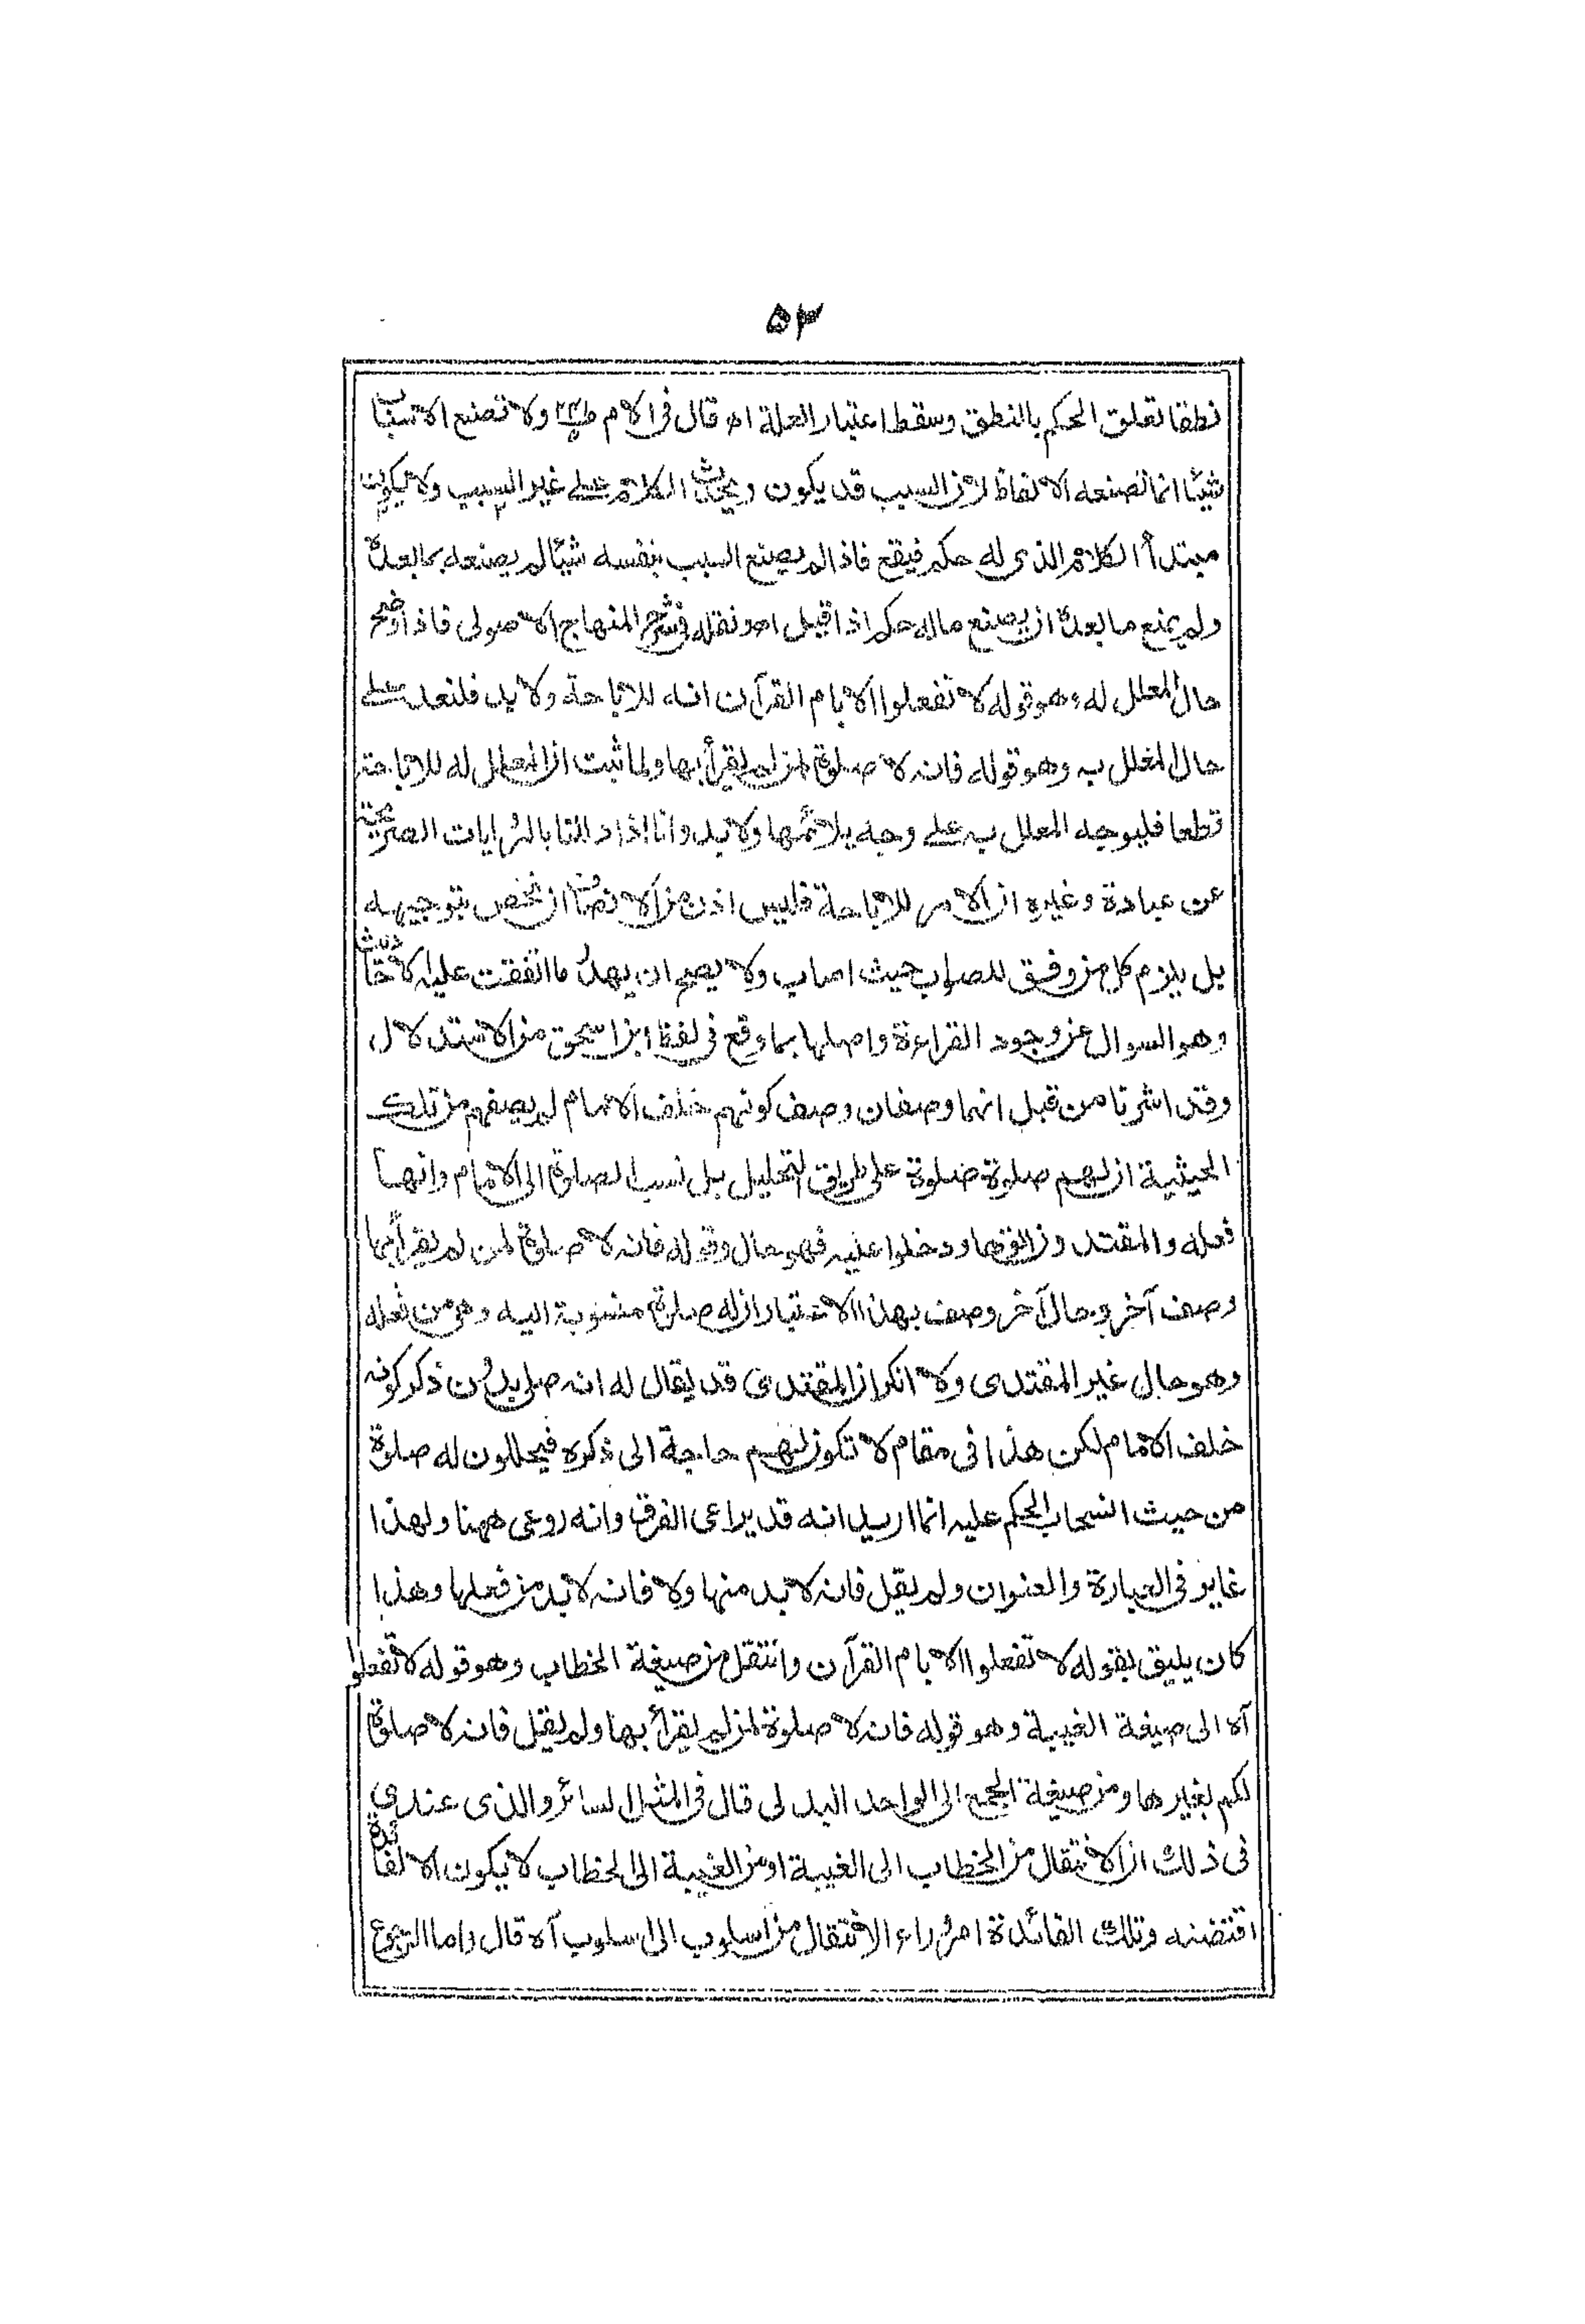 ٥٣
نطقا تعلق الحكم بالنطق وسقط اعتبار العلة اه قال فى الام ولا تصنع الاسباب
شيئا انما تصنعه الالفاظ لان السبب قد يكون ويحدث الكلام على غير السبب ولا يكون
مبتدأ الكلام الذى له حكم فيقع فاذا لم يصنع السبب بنفسه شيئا لم يصنعه بما بعده
ولم يمنع ما بعده ان يصنع ماله حكم اذا قيل اه ونقله فى شرح المنهاج الاصولى فاذا وضح
حال المعلل له وهو قوله لا تفعلوا الا بام القرآن انه للاباحة ولا بد فلنعد على
حال المعلل به وهو قوله فانه لا صلوة لمن لم يقرأ بها ولما ثبت ان المعلل له للاباحة
قطعا فليوجه المعلل به على وجه يلائمها ولا بد وانا اذا دللنا بالروايات الصريحة
عن عبادة وغيره ان الامر للاباحة فليس اذن من الانصاف ان نخص بتوجيهه
بل يلزم كل من وفق للصواب حيث اصاب ولا يصح ان يهدر ما اتفقت عليه الاحاديث
وهو السوال عن وجود القراءة واصلها بما وقع فى لفظ ابن اسحق من الاستدلال
وقد اشرنا من قبل انهما وصفان وصف كونهم خلف الامام لم يصفهم من تلك
الحيثية ان لهم صلوة صلوة على طريق التحليل بل نسب الصلوة الى الامام وانها
فعله والمقتدون ائتموا ودخلوا عليه فهو حال وقوله فانه لا صلوة لمن لم يقرأ بها
وصف آخر وحال آخر وصف بهذا الاعتبار ان له صلوة منسوبة اليه وهى من فعله
وهو حال غير المقتدى ولا انكر ان المقتدى قد يقال له انه صلى بدون ذكر كونه
خلف الامام لكن هذا فى مقام لا تكون لهم حاجة الى ذكره فيحللون له صلوة
من حيث انسحاب الحكم عليه انما اريد انه قد يراعى الفرق وانه روعى ههنا ولهذا
غاير فى العبارة والعنوان ولم يقل فانه لا بد منها ولا فانه لا بد من فعلها وهذا
كان يليق بقوله لا تفعلوا الا بام القرآن وانتقل من صيغة الخطاب وهو قوله لا تفعلوا
آه الى صيغة الغيبة وهو قوله فانه لا صلوة لمن لم يقرأ بها ولم يقل فانه لا صلوة
لكم بغيرها ومن صيغة الجمع الى الواحد البدلى قال فى المثل السائر والذى عندى
فى ذلك ان الانتقال من الخطاب الى الغيبة او من الغيبة الى الخطاب لا يكون الا لفائدة
اقتضته وتلك الفائدة امر وراء الانتقال من اسلوب الى اسلوب آه قال واما الرجوع